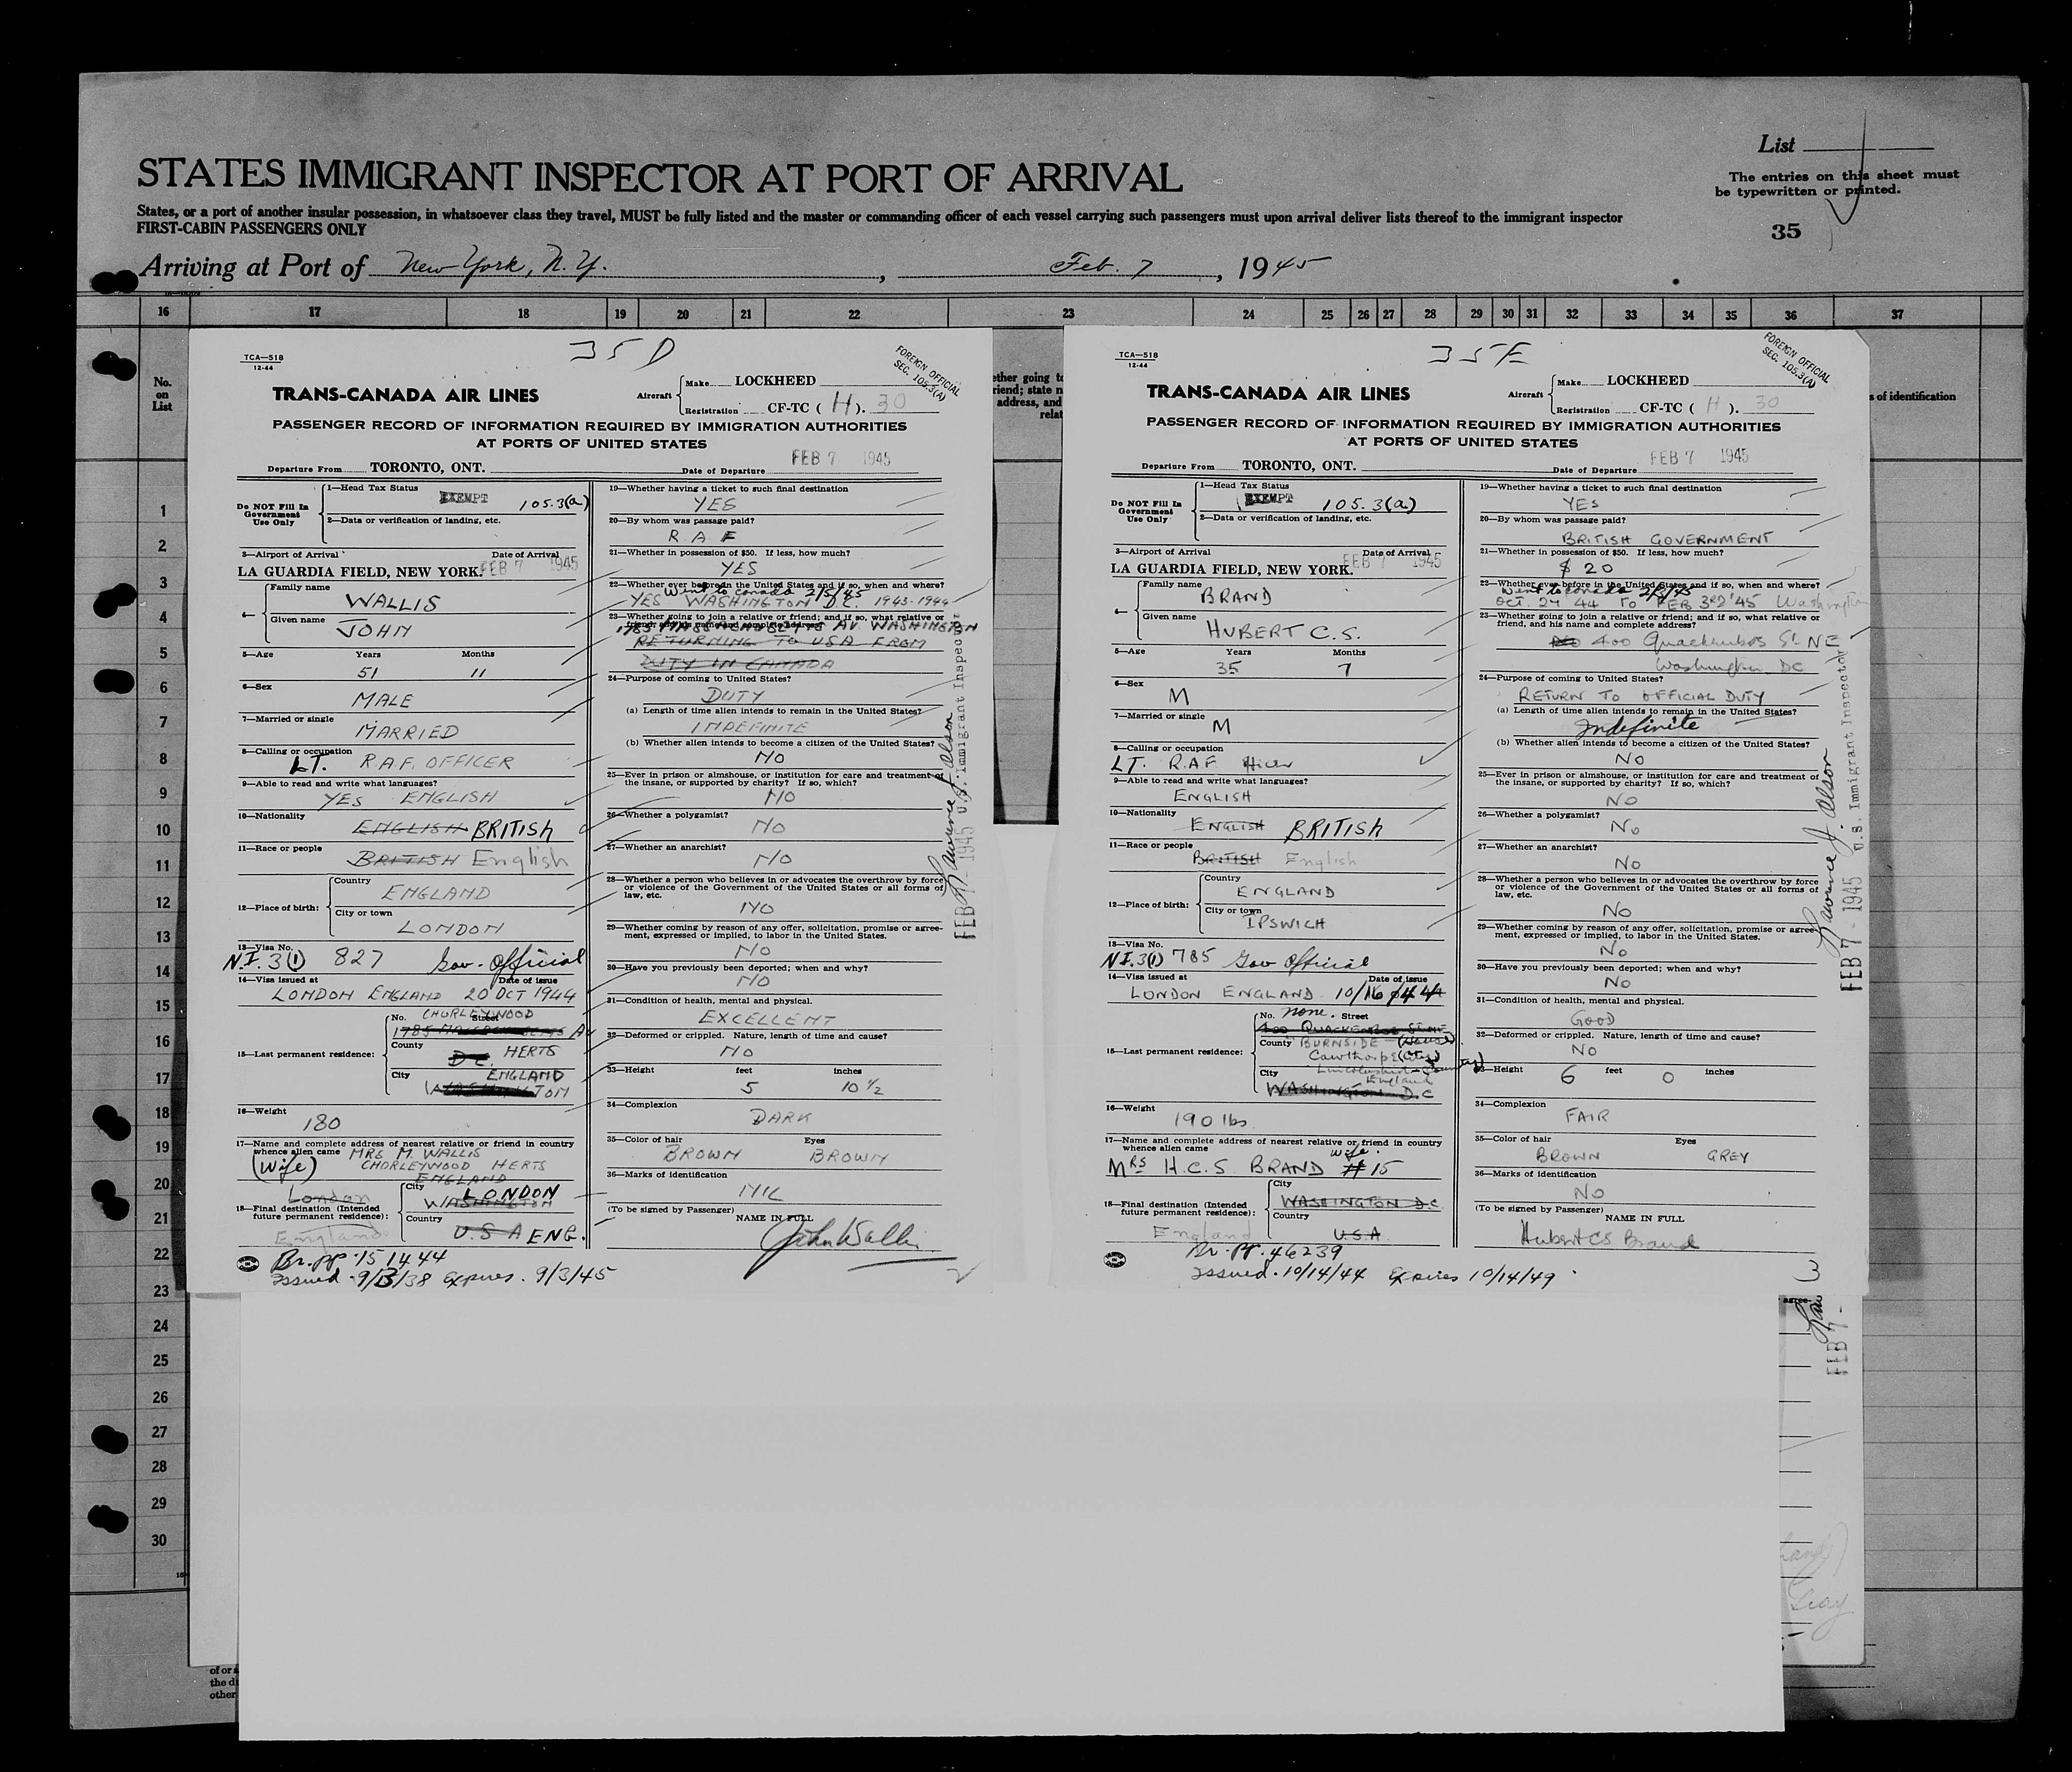 List
STATES IMMIGRANT INSPECTOR AT PORT OF ARRIVAL
The entries on this sheet must
be typewritten or printed.
States, or a port of another insular possession, in whatsoever class they travel, MUST be fully listed and the master or commanding officer of each vessel carrying such passengers must upon arrival deliver lists thereof to the immigrant inspector
FIRST-CABIN PASSENGERS ONLY
35
Arriving at Port of New York, N.Y. , Feb. 7 , 1945
16 17 18 19 20 21 22 23 24 25 26 27 28 29 30 31 32 33 34 35 36 37
No.
on
List
1
2
3
4
5
6
7
8
9
10
11
12
13
14
15
16
17
18
19
20
21
22
23
24
25
26
27
28
29
30
ether going to
riend; state n
address, and
relat
s of identification
TCA—518
12-44
35 D
FOREIGN OFFICIAL
SEC. 105.3(A)
TRANS-CANADA AIR LINES
Aircraft Make LOCKHEED
Registration CF-TC ( H ). 30
PASSENGER RECORD OF INFORMATION REQUIRED BY IMMIGRATION AUTHORITIES
AT PORTS OF UNITED STATES
Departure From TORONTO, ONT. Date of Departure FEB 7 1945
Do NOT Fill In
Government
Use Only
1—Head Tax Status
EXEMPT 105.3(a)
2—Data or verification of landing, etc.
3—Airport of Arrival Date of Arrival
LA GUARDIA FIELD, NEW YORK. FEB 7 1945
4— Family name
WALLIS
Given name
JOHN
5—Age Years Months
51 11
6—Sex
MALE
7—Married or single
MARRIED
8—Calling or occupation
LT. R.A.F. OFFICER
9—Able to read and write what languages?
YES ENGLISH
10—Nationality
ENGLISH BRITISH
11—Race or people
BRITISH English
12—Place of birth: Country
ENGLAND
City or town
LONDON
13—Visa No.
N.I. 3(1) 827 Gov. Official
14—Visa issued at Date of issue
LONDON ENGLAND 20 OCT 1944
15—Last permanent residence: No. Street
CHORLEYWOOD
County
D.C. HERTS
City
ENGLAND
16—Weight
180
17—Name and complete address of nearest relative or friend in country
whence alien came MRS M. WALLIS
(Wife) CHORLEYWOOD HERTS
ENGLAND
18—Final destination (Intended
future permanent residence):
London
England
City
LONDON
WASHINGTON
Country
U.S.A ENG.
Br. pp. 151444
Issued. 9/13/38 Expires. 9/3/45
19—Whether having a ticket to such final destination
YES
20—By whom was passage paid?
R A F
21—Whether in possession of $50. If less, how much?
YES
22—Whether ever before in the United States and if so, when and where?
Went to Canada 2/5/45
YES WASHINGTON D.C. 1943-1944
23—Whether going to join a relative or friend; and if so, what relative or
friend, and his name and complete address?
1785 MASSACHUSETTS AV. WASHINGTON
RETURNING TO USA FROM
DUTY IN CANADA
24—Purpose of coming to United States?
DUTY
(a) Length of time alien intends to remain in the United States?
INDEFINITE
(b) Whether alien intends to become a citizen of the United States?
NO
25—Ever in prison or almshouse, or institution for care and treatment of
the insane, or supported by charity? If so, which?
NO
26—Whether a polygamist?
NO
27—Whether an anarchist?
NO
28—Whether a person who believes in or advocates the overthrow by force
or violence of the Government of the United States or all forms of
law, etc.
NO
29—Whether coming by reason of any offer, solicitation, promise or agree-
ment, expressed or implied, to labor in the United States.
NO
30—Have you previously been deported; when and why?
NO
31—Condition of health, mental and physical.
EXCELLENT
32—Deformed or crippled. Nature, length of time and cause?
NO
33—Height feet inches
5 10 1/2
34—Complexion
DARK
35—Color of hair Eyes
BROWN BROWN
36—Marks of identification
NIL
(To be signed by Passenger)
NAME IN FULL
John Wallis
FEB 7 - 1945 U.S. Immigrant Inspector
TCA—518
12-44
35 E
FOREIGN OFFICIAL
SEC. 105.3(A)
TRANS-CANADA AIR LINES
Aircraft Make LOCKHEED
Registration CF-TC ( H ). 30
PASSENGER RECORD OF INFORMATION REQUIRED BY IMMIGRATION AUTHORITIES
AT PORTS OF UNITED STATES
Departure From TORONTO, ONT. Date of Departure FEB 7 1945
Do NOT Fill In
Government
Use Only
1—Head Tax Status
EXEMPT 105.3(a)
2—Data or verification of landing, etc.
3—Airport of Arrival Date of Arrival
LA GUARDIA FIELD, NEW YORK. FEB 7 1945
4— Family name
BRAND
Given name
HUBERT C.S.
5—Age Years Months
35 7
6—Sex
M
7—Married or single
M
8—Calling or occupation
LT. R.A.F
9—Able to read and write what languages?
ENGLISH
10—Nationality
ENGLISH BRITISH
11—Race or people
BRITISH English
12—Place of birth: Country
ENGLAND
City or town
IPSWICH
13—Visa No.
N.I. 3(1) 785 Gov Official
14—Visa issued at Date of issue
LONDON ENGLAND 10/16/44
15—Last permanent residence: No. none. Street
400 QUACKENBOS ST NE
County BURNSIDE (House)
Cawthorpe (City)
City Lincolnshire
England
WASHINGTON D.C
16—Weight
190 lbs
17—Name and complete address of nearest relative or friend in country
whence alien came wife.
MRS H.C.S. BRAND # 15
18—Final destination (Intended
future permanent residence):
England
City
WASHINGTON D.C.
Country
U.S.A.
Br. pp. 46239
Issued. 10/14/44 Expires 10/14/49
19—Whether having a ticket to such final destination
YES
20—By whom was passage paid?
BRITISH GOVERNMENT
21—Whether in possession of $50. If less, how much?
$ 20
22—Whether ever before in the United States and if so, when and where?
Went to Canada 2/3/45
OCT. 24 44 TO FEB 3RD '45 Washington
23—Whether going to join a relative or friend; and if so, what relative or
friend, and his name and complete address?
400 Quackenbos St. NE
Washington DC
24—Purpose of coming to United States?
RETURN TO OFFICIAL DUTY
(a) Length of time alien intends to remain in the United States?
Indefinite
(b) Whether alien intends to become a citizen of the United States?
NO
25—Ever in prison or almshouse, or institution for care and treatment of
the insane, or supported by charity? If so, which?
NO
26—Whether a polygamist?
No
27—Whether an anarchist?
No
28—Whether a person who believes in or advocates the overthrow by force
or violence of the Government of the United States or all forms of
law, etc.
No
29—Whether coming by reason of any offer, solicitation, promise or agree-
ment, expressed or implied, to labor in the United States.
No
30—Have you previously been deported; when and why?
No
31—Condition of health, mental and physical.
GOOD
32—Deformed or crippled. Nature, length of time and cause?
NO
33—Height feet inches
6 0
34—Complexion
FAIR
35—Color of hair Eyes
BROWN GREY
36—Marks of identification
NO
(To be signed by Passenger)
NAME IN FULL
Hubert CS Brand
FEB 7 - 1945 U.S. Immigrant Inspector
agree-
FEB 7 -
Gray
of or a
the di
other